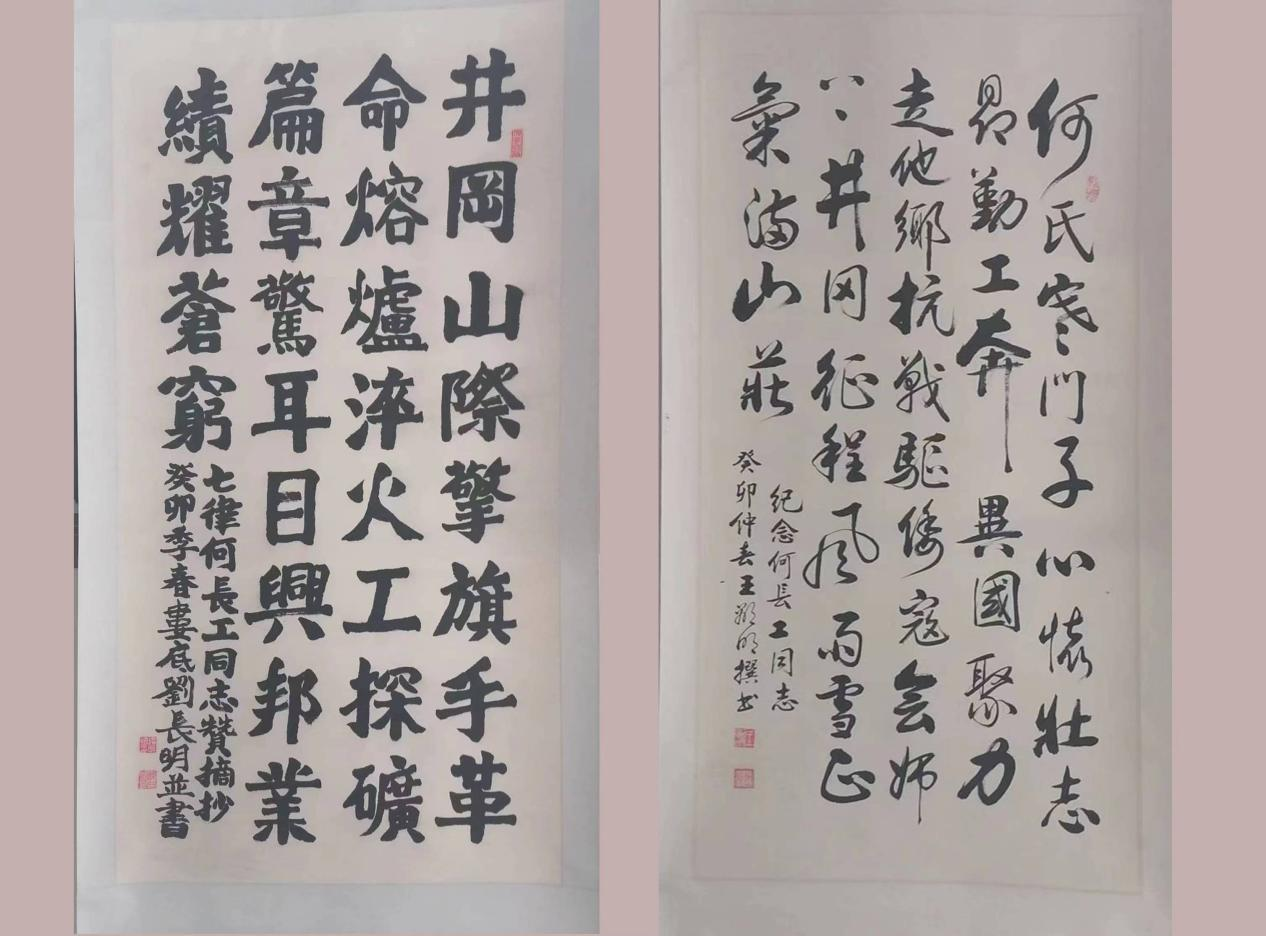 井岡山際擎旗手革
命熔爐淬火工探礦
篇章驚耳目興邦業
績耀蒼窮
七律何長工同志贊摘抄
癸卯季春婁底劉長明並書
何氏寒門子心懷壯志
昂勤工奔異國聚力
走他鄉抗戰驅倭寇會师
井冈征程風雨雪正
氣滿山莊
紀念何長工同志
癸卯仲春王明撰书